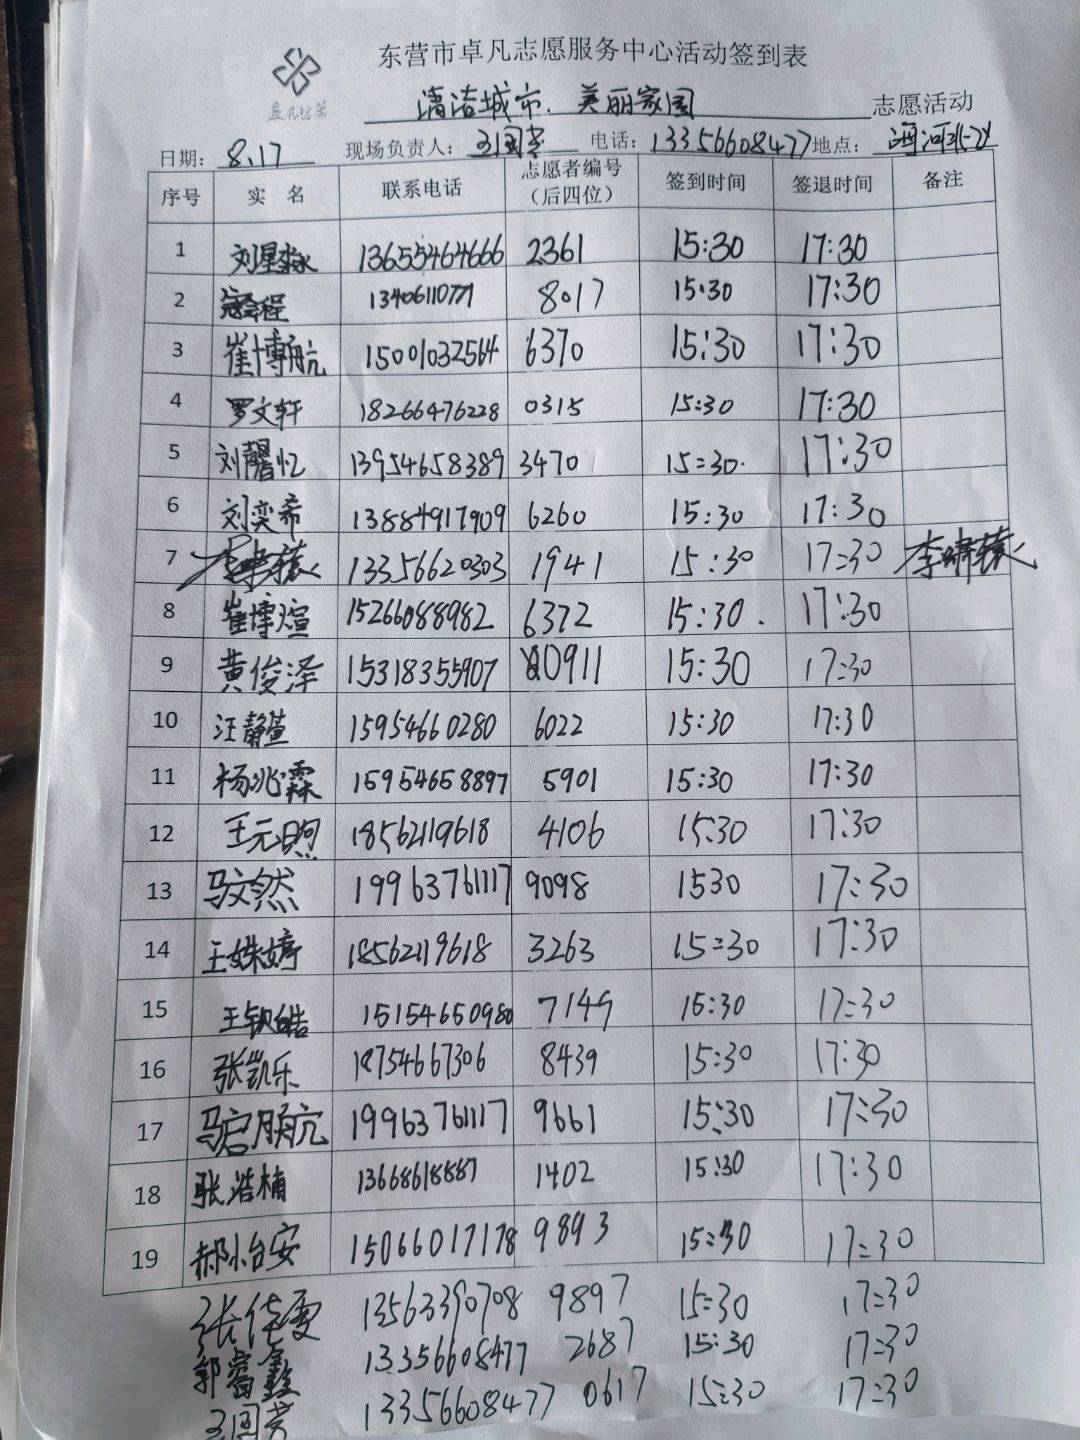 东营市卓凡志愿服务中心活动签到表
清洁城市、美丽家园 志愿活动
日期: 8.17 现场负责人: 王国芳 电话: 13356608477 地点:
序号 实 名 联系电话 志愿者编号（后四位） 签到时间 签退时间 备注
1 刘星淼 13655464666 2361 15:30 17:30
2 13406110771 8017 15:30 17:30
3 崔博航 15001032564 6370 15:30 17:30
4 罗文轩 18266476228 0315 15:30 17:30
5 刘馨忆 13954658389 3470 15:30 17:30
6 刘奕希 13884917909 6260 15:30 17:30
7 13356620303 1941 15:30 17:30 李啸辕
8 崔博煊 15266088982 6372 15:30 17:30
9 黄俊泽 15318355907 0911 15:30 17:30
10 汪静萱 15954660280 6022 15:30 17:30
11 杨兆霖 15954658897 5901 15:30 17:30
12 王元煦 18562119618 4106 15:30 17:30
13 马文然 19963761117 9098 1530 17:30
14 王姝婷 18562119618 3263 15:30 17:30
15 王钦皓 15154650980 7149 15:30 17:30
16 张凯乐 18754667306 8439 15:30 17:30
17 马启航 19963761117 9661 15:30 17:30
18 张浩楠 13668618887 1402 15:30 17:30
19 郝怡安 15066017178 9893 15:30 17:30
张佳雯 13563390708 9897 15:30 17:30
郭富鑫 13356608477 2687 15:30 17:30
王国芳 13356608477 0617 15:30 17:30